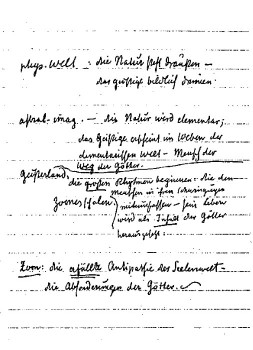 phys. Welt : die Natur steht draußen –
das geistige bildlich darinnen.
astral-imag. – die Natur wird elementar;
das Geistige erscheint im Weben der
elementarischen Welt – Mensch der
Weg der Götter.
Geisterland, die großen Rhythmen beginnen: die den
Menschen in ihre Schwingungen
mitumfassen – sein Leben
wird als Inhalt der Götter
herausgelebt.
Zorn: die erfüllte Antipathie der Seelenwelt –
die Abforderungen der Götter.